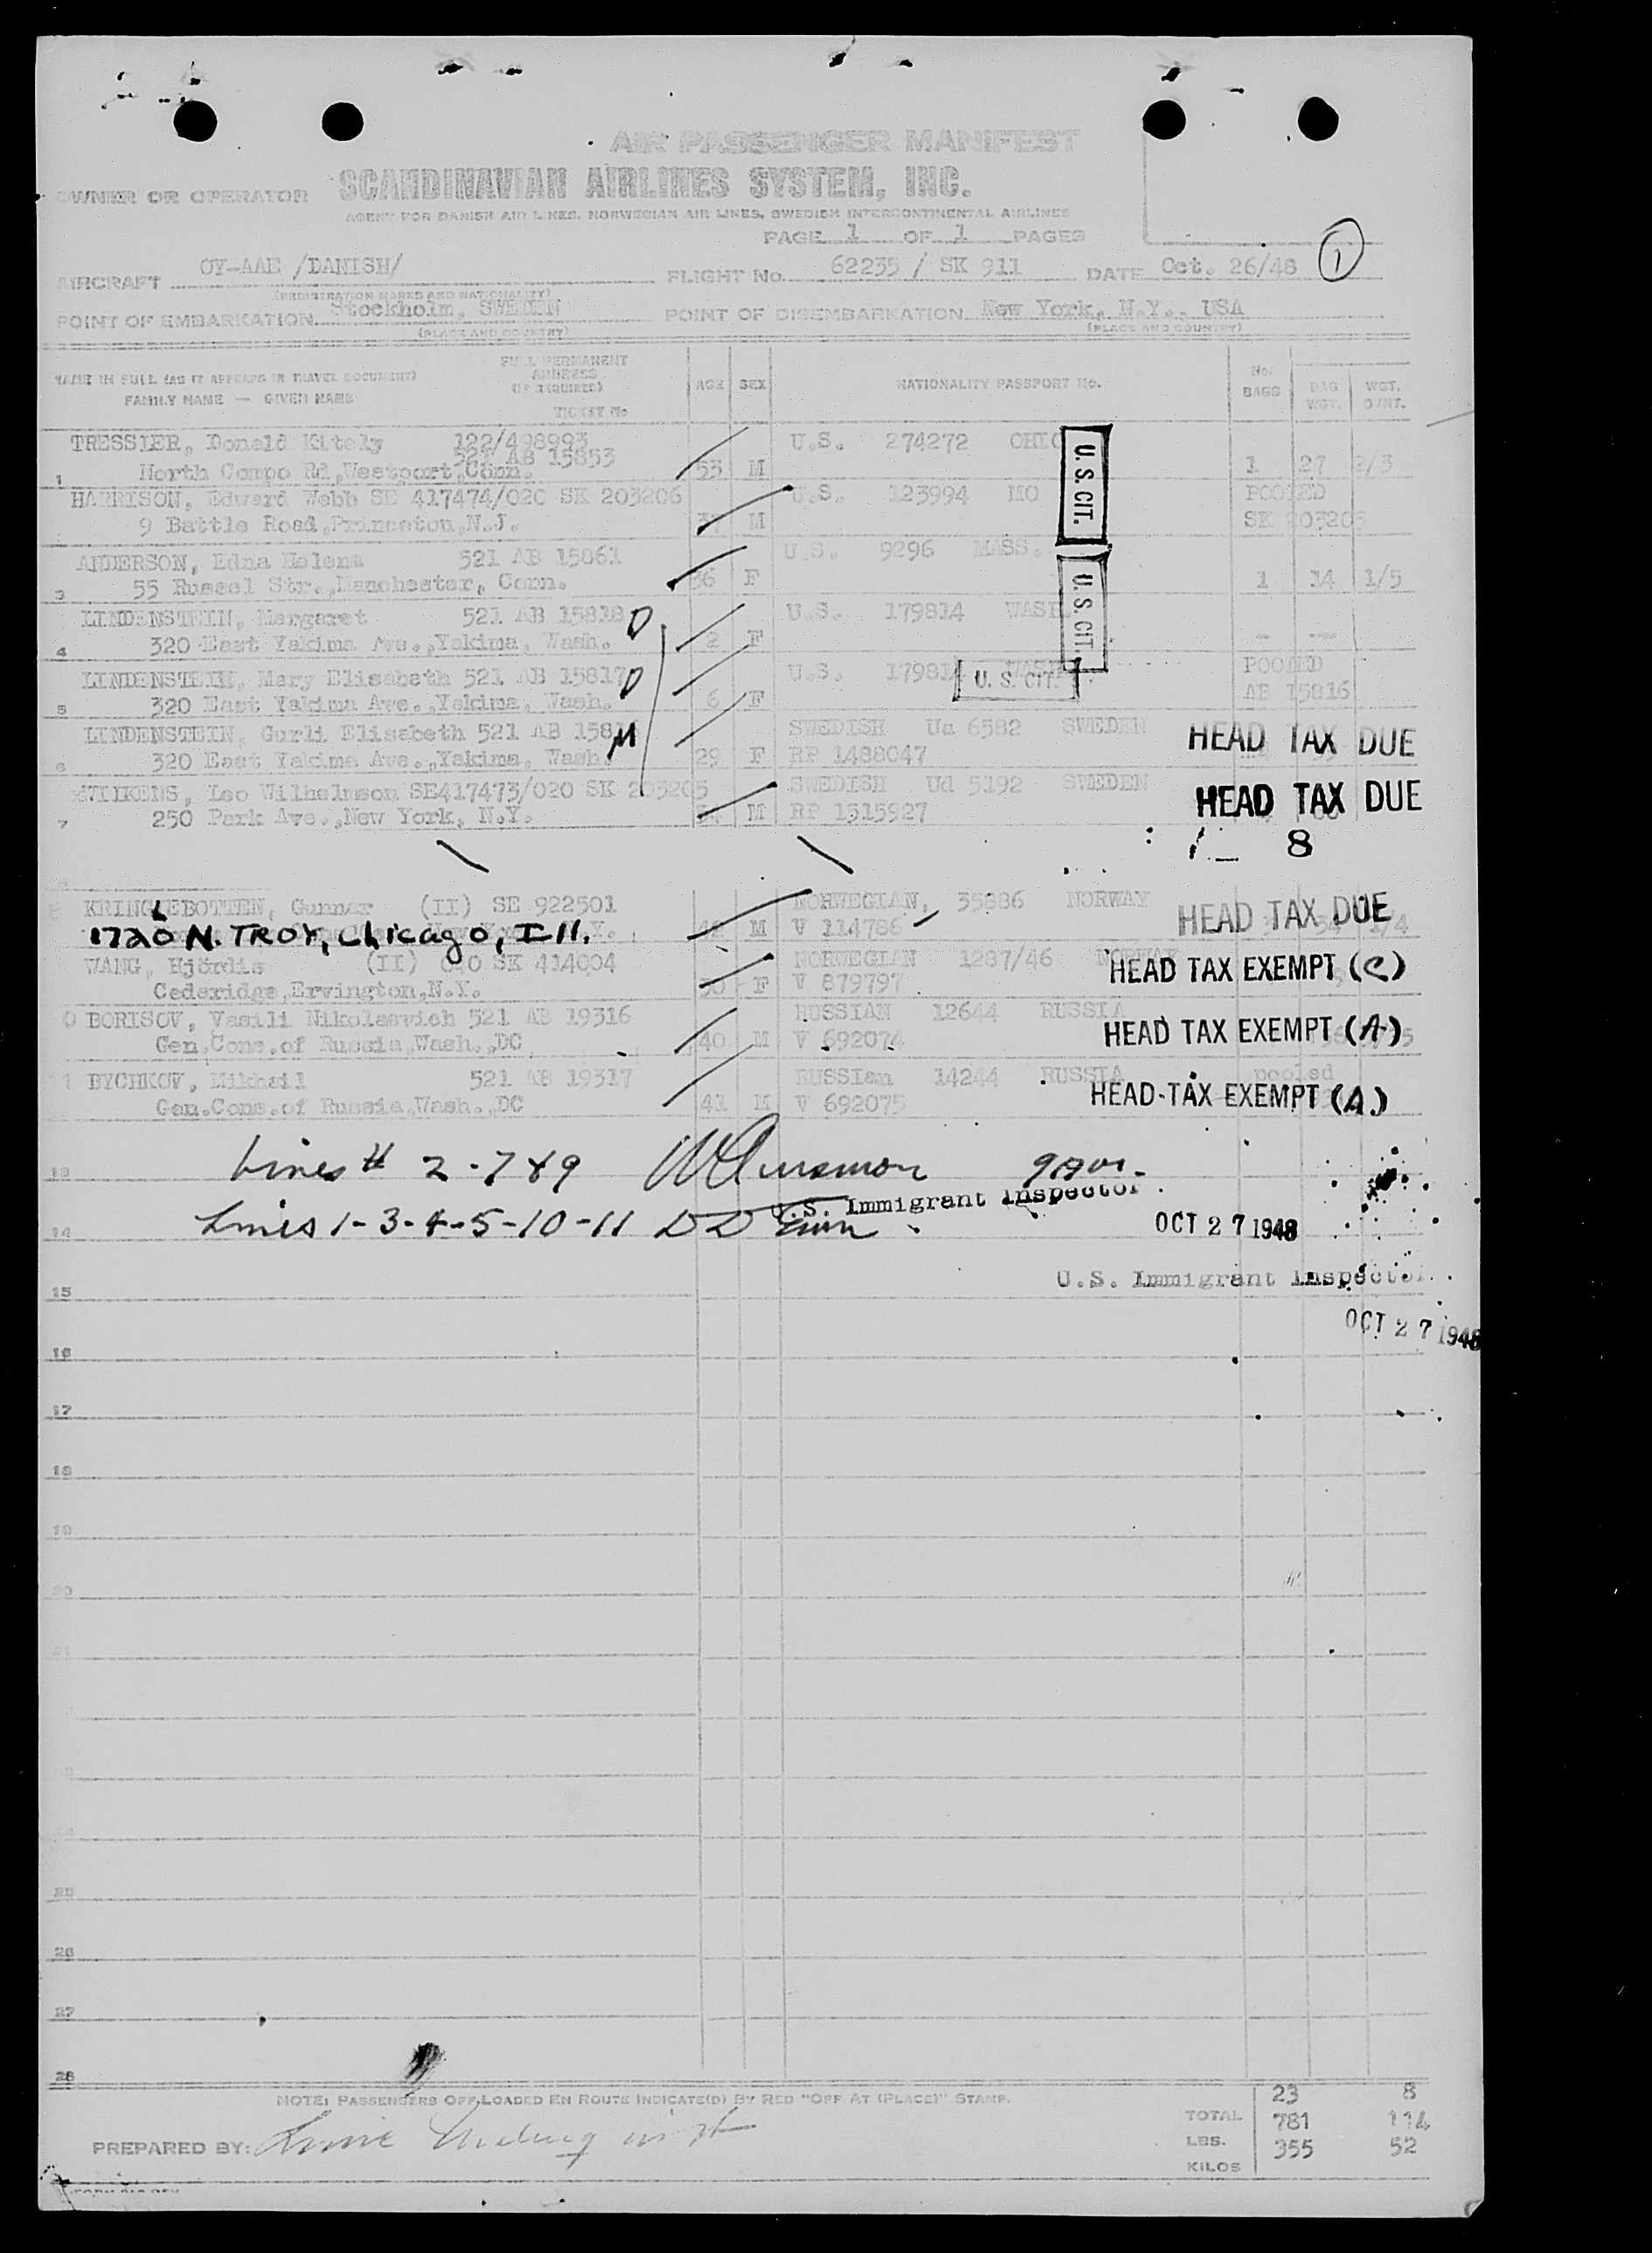 AIR PASSENGER MANIFEST
OWNER OR OPERATOR SCANDINAVIAN AIRLINES SYSTEM, INC.
AGENT FOR DANISH AIR LINES, NORWEGIAN AIR LINES, SWEDISH INTERCONTINENTAL AIRLINES
PAGE 1 OF 1 PAGES
AIRCRAFT OY-AAE /DANISH/ FLIGHT No. 62235 / SK 911 DATE Oct. 26/48 1
(REGISTRATION MARKS AND NATIONALITY)
POINT OF EMBARKATION Stockholm, SWEDEN POINT OF DISEMBARKATION New York, N.Y., USA
(PLACE AND COUNTRY) (PLACE AND COUNTRY)
NAME IN FULL (AS IT APPEARS IN TRAVEL DOCUMENT) FULL PERMANENT ADDRESS (IF REQUIRED) AGE SEX NATIONALITY PASSPORT No. No. BAGS BAG WGT. WGT.
FAMILY NAME — GIVEN NAME TICKET No
TRESSIER, Donald Kitely 122/498993 U.S. 274272 OHIO
521 AB 15853
1 North Compo Rd,Westport,Conn. 53 M 1 27 2/3
HARRISON, Edward Webb SE 417474/020 SK 203206 U.S. 123994 MO POOLED
9 Battle Road,Princeton,N.J. 37 M SK 203205
U.S. CIT.
ANDERSON, Edna Helena 521 AB 15861 U.S. 9296 MASS.
3 55 Russel Str.,Manchester, Conn. 36 F 1 14 1/5
LINDENSTEIN, Margaret 521 AB 15818 D U.S. 179814 WASH
4 320 East Yakima Ave.,Yakima, Wash. 2 F - --
U.S. CIT.
LINDENSTEIN, Mary Elisabeth 521 AB 15817 D U.S. 179814 WASH. POOLED
5 320 East Yakima Ave.,Yakima, Wash. 6 F U. S. CIT. AB 15816
LINDENSTEIN, Gurli Elisabeth 521 AB 1581 M SWEDISH Ua 6582 SWEDEN HEAD TAX DUE
6 320 East Yakima Ave.,Yakima, Wash. 29 F RP 1488047
WILKENS, Leo Wilhelmson SE417473/020 SK 203205 SWEDISH Ud 5192 SWEDEN HEAD TAX DUE
7 250 Park Ave.,New York, N.Y. M RP 1515927
1 - 8
KRINGLEBOTTEN, Gunnar (II) SE 922501 NORWEGIAN, 35886 NORWAY HEAD TAX DUE
1720 N. TROY, Chicago, Ill. M V 114786 1/4
WANG, Hjördis (II) 020 SK 414004 NORWEGIAN 1287/46 NORWAY HEAD TAX EXEMPT (C)
Cederidge,Ervington,N.Y. 30 F V 879797
0 BORISOV, Vasili Nikolaevich 521 AB 19316 RUSSIAN 12644 RUSSIA HEAD TAX EXEMPT (A)
Gen.Cons.of Russia,Wash.,DC 40 M V 692074
11 BYCHKOV, Mikhail 521 AB 19317 RUSSIan 14244 RUSSIA pooled
Gen.Cons.of Russia,Wash.,DC 41 M V 692075 HEAD TAX EXEMPT (A)
13 Lines # 2-7 & 9 9 am-
U.S. Immigrant Inspector
14 Lines 1-3-4-5-10-11 OCT 27 1948
U.S. Immigrant Inspector
15
OCT 27 1948
16
17
18
19
20
21
25
26
27
28
NOTE: PASSENGERS OFF-LOADED EN ROUTE INDICATE(D) BY RED "OFF AT (PLACE)" STAMP.
23 8
TOTAL 781 114
LBS. 355 52
KILOS
PREPARED BY: